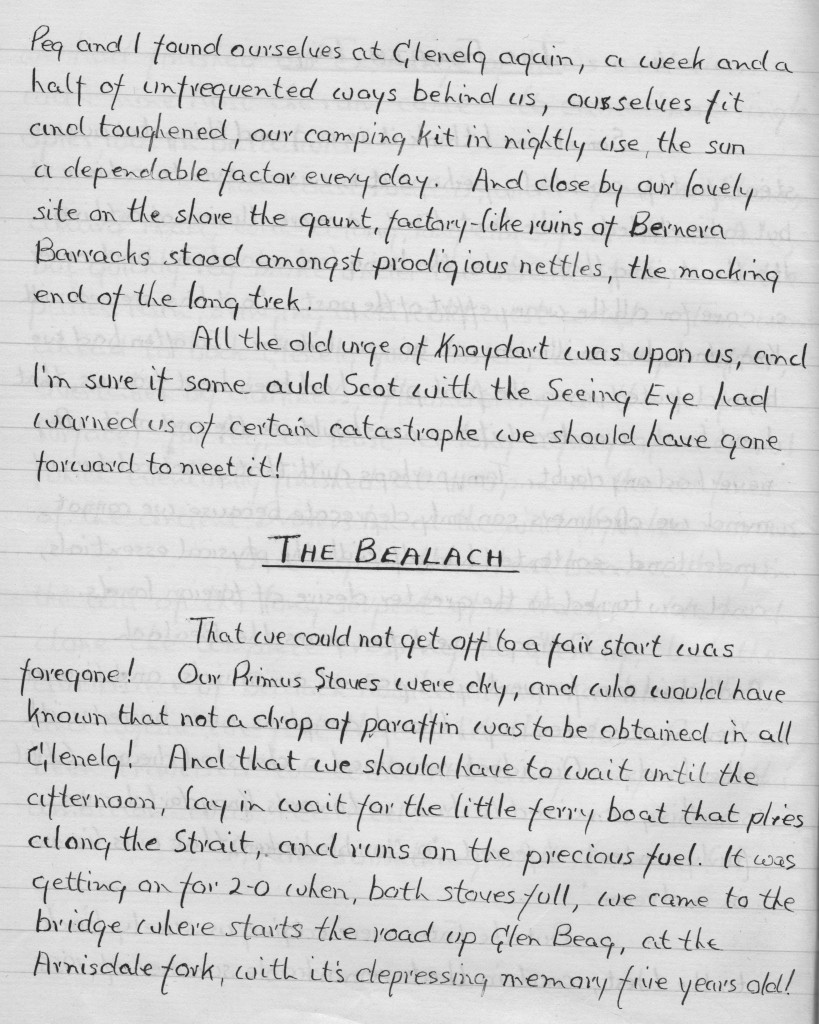 Peg and I found ourselves at Glenelg again, a week and a
half of unfrequented ways behind us, ourselves fit
and toughened, our camping kit in nightly use, the sun
a dependable factor every day. And close by our lovely
site on the shore the gaunt, factory-like ruins of Bernera
Barracks stood amongst prodigious nettles, the mocking
end of the long trek.
All the old urge of Knoydart was upon us, and
I'm sure if some auld Scot with the Seeing Eye had
warned us of certain catastrophe we should have gone
forward to meet it!
THE BEALACH
That we could not get off to a fair start was
foregone! Our Primus Stoves were dry, and who would have
known that not a drop of paraffin was to be obtained in all
Glenelg! And that we should have to wait until the
afternoon, lay in wait for the little ferry boat that plies
along the Strait, and runs on the precious fuel. It was
getting on for 2-0 when, both stoves full, we came to the
bridge where starts the road up Glen Beag, at the
Arnisdale fork, with it's depressing memory five years old!